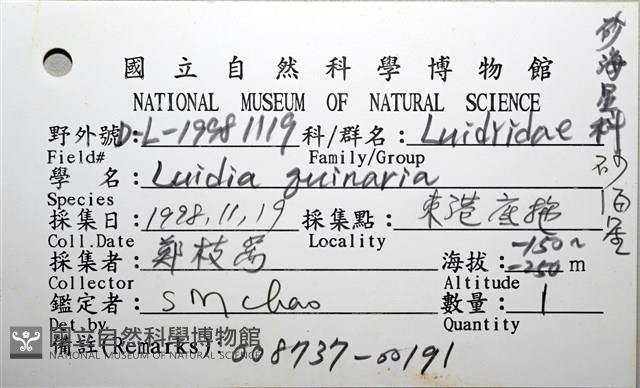 國立自然科學博物館
NATIONAL MUSEUM OF NATURAL SCIENCE
野外號:D-L-19981119 科/群名:Luidridae
Field# Family/Group
學 名:Luidia quinaria
Species
採集日:1998.11.19 採集點:東港底拖
Coll.Date Locality
採集者:鄭枝 海拔:-150~-250 m
Collector Altitude
鑑定者:S M Chao 數量:1
Det.by Quantity
備註(Remarks):008737-00191
砂海星科 砂海星
國立自然科學博物館
NATIONAL MUSEUM OF NATURAL SCIENCE